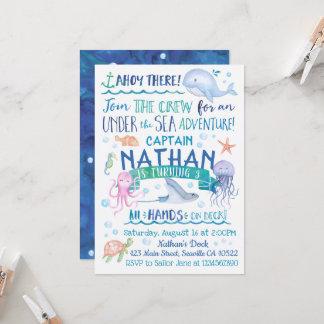 AHOY THERE!
Join THE CREW for an
UNDER the SEA ADVENTURE!
CAPTAIN
NATHAN
IS TURNING 3
All HANDS ON DECK!
Saturday, August 16 at 2:00PM
Nathan's Dock
423 Main Street, Seaville 04523
RSVP to Sailor Jane at 1234567890